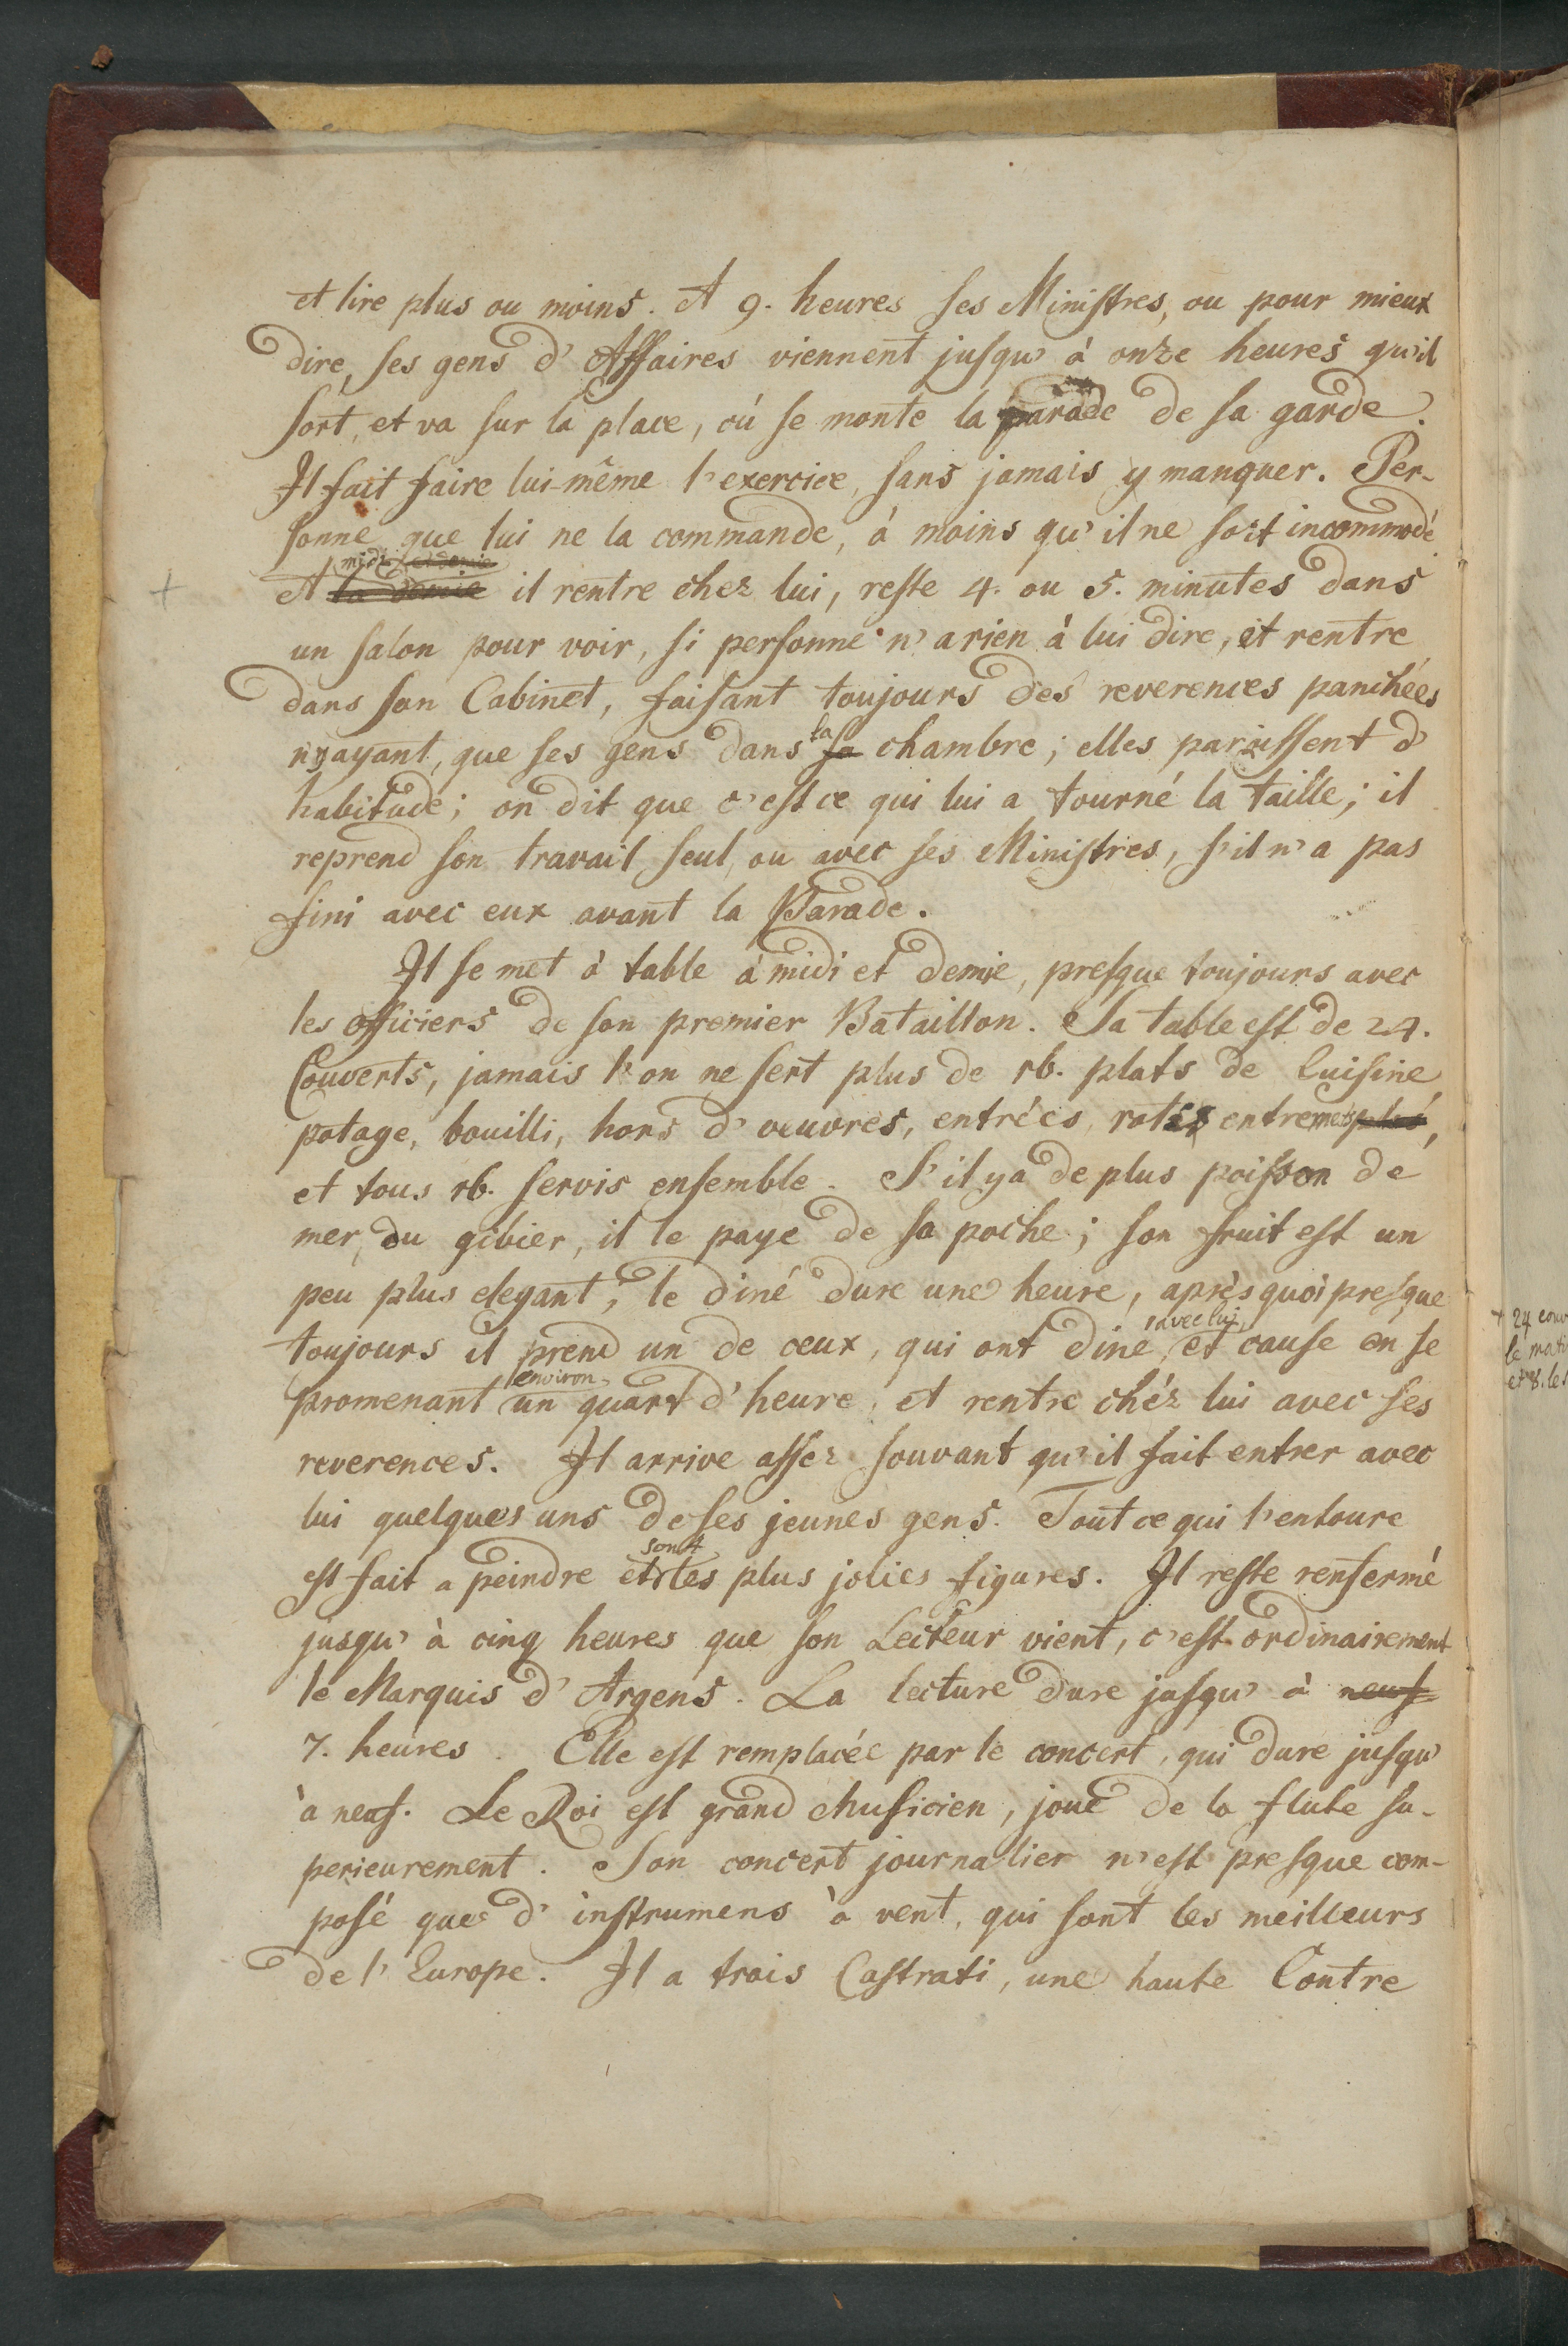 et lire plus ou moins. A 9. heures ses Ministres, ou pour mieux
dire, ses gens d'Affaires viennent jusqu' à onze heures qu'il
sort, et va sur la place, où se monte la parade de sa garde.
Il fait faire lui-même l'exercice, sans jamais y manquer. Per-
sonne que lui ne la commande, à moins qu'il ne soit incommodé
midi et demie
+ A la demie il rentre chez lui, reste 4. ou 5. minutes dans
un salon pour voir, si personne n'a rien à lui dire, et rentre
dans son Cabinet, faisant toujours des reverences panchées
la
n'ayant, que ses gens dans sa chambre; elles paraissent d'
habitude; on dit que c'est ce qui lui a tourné la taille; il
reprend son travail seul, ou avec ses Ministres, s'il n'a pas
fini avec eux avant la Parade.
Il se met à table à midi et demie, presque toujours avec
les officiers de son premier Bataillon. Sa table est de 24.
Couverts, jamais l'on ne sert plus de 16. plats de Cuisine
potage, bouilli, hors d'oeuvres, entrées, rotis entremets,
et tous 16. servis ensemble. S'il y a de plus poisson de
mer, ou gibier, il le paye de sa poche; son fruit est un
peu plus elegant, le diné dure une heure, après quoi presque
avec lui,
toujours il prend un de ceux, qui ont diné, et cause en se
environ
promenant un quart d'heure, et rentre chéz lui avec ses
reverences. Il arrive assez souvant qu'il fait entrer avec
lui quelques uns de ses jeunes gens. Tout ce qui l'entoure
sont
est fait a peindre et les plus jolies figures. Il reste renfermé
jusqu' à cinq heures que son Lecteur vient, c'est ordinairement
le Marquis d'Argens. La lecture dure jusqu' à neuf
7. heures. Elle est remplacée par le concert, qui dure jusqu'
à neuf. Le Roi est grand Musicien, joue de la flute su-
perieurement. Son concert journalier n'est presque com-
posé que d'instrumens à vent, qui sont les meilleurs
de l'Europe. Il a trois Castrati, une haute Contre
+ 24 couv
le mati
et 8. les